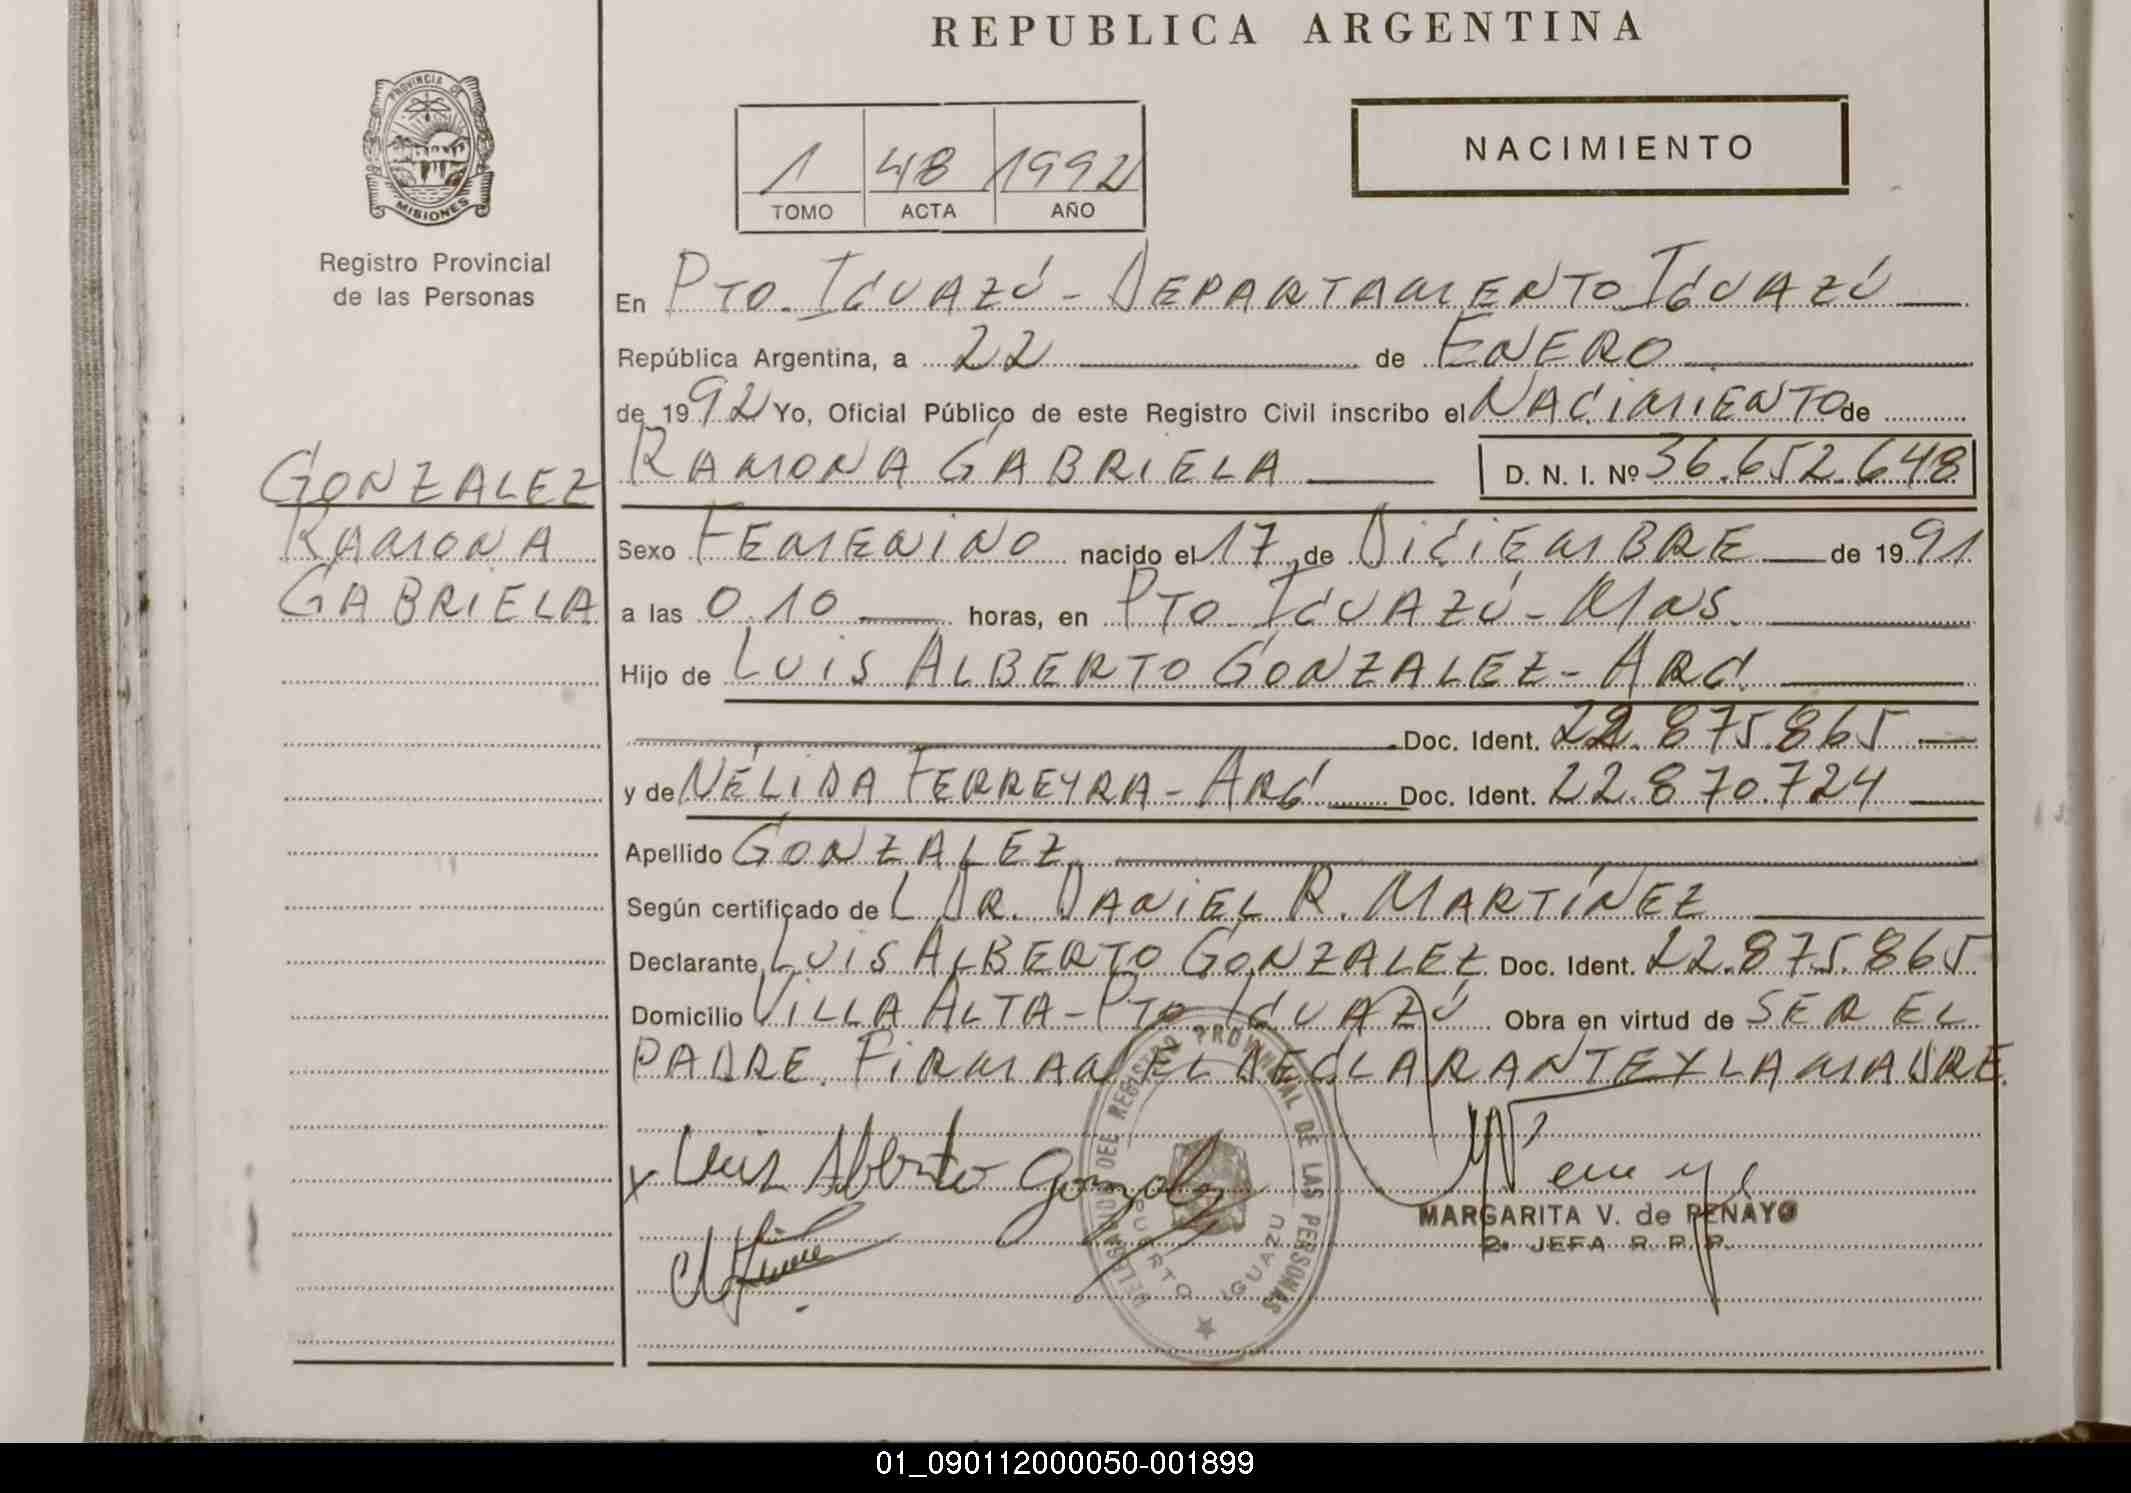 REPUBLICA ARGENTINA
PROVINCIA DE
MISIONES
Registro Provincial
de las Personas
1 48 1992
TOMO ACTA AÑO
NACIMIENTO
En PTO. IGUAZÚ - DEPARTAMENTO IGUAZÚ
República Argentina, a 22 de ENERO
de 1992 Yo, Oficial Público de este Registro Civil inscribo el NACIMIENTO de
GONZALEZ
RAMONA
GABRIELA
RAMONA GABRIELA D. N. I. Nº 36.652.648
Sexo FEMENINO nacido el 17 de DICIEMBRE de 1991
a las 0.10 horas, en PTO. IGUAZÚ - MNS.
Hijo de LUIS ALBERTO GONZALEZ - ARG.
Doc. Ident. 22.875.865
y de NÉLIDA FERREYRA - ARG Doc. Ident. 22.870.724
Apellido GONZALEZ
Según certificado de L DR. DANIEL R. MARTÍNEZ
Declarante LUIS ALBERTO GONZALEZ Doc. Ident. 22.875.865
Domicilio VILLA ALTA - PTO IGUAZÚ Obra en virtud de SER EL
PADRE. FIRMAN EL DECLARANTE Y LA MADRE.
x Luis Alberto Gonzalez
DELEGACION DEL REGISTRO PROVINCIAL DE LAS PERSONAS
PUERTO IGUAZU
MARGARITA V. de PENAYO
2ª JEFA R. P. P.
01_090112000050-001899